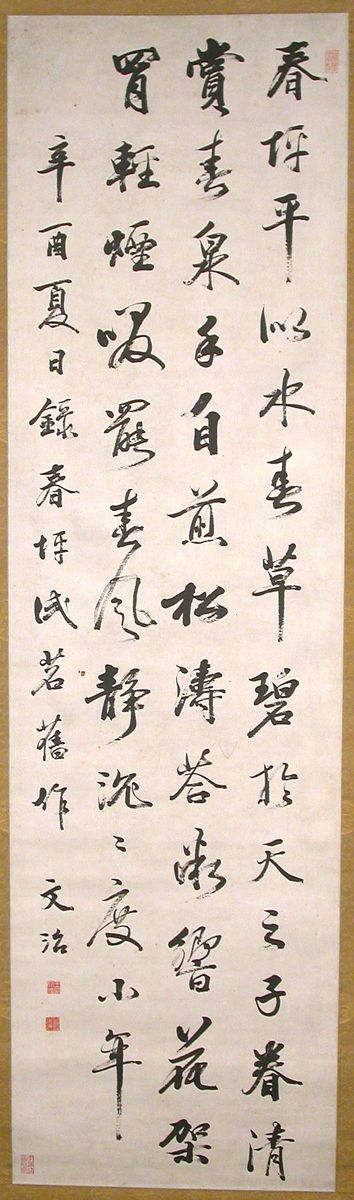 春坪平似水春草碧於天之子眷清
賞春泉手自煎松濤答漸響花架
罥輕煙啜罷春風靜沉〻度小年
辛酉夏日錄春坪試茗舊作 文治